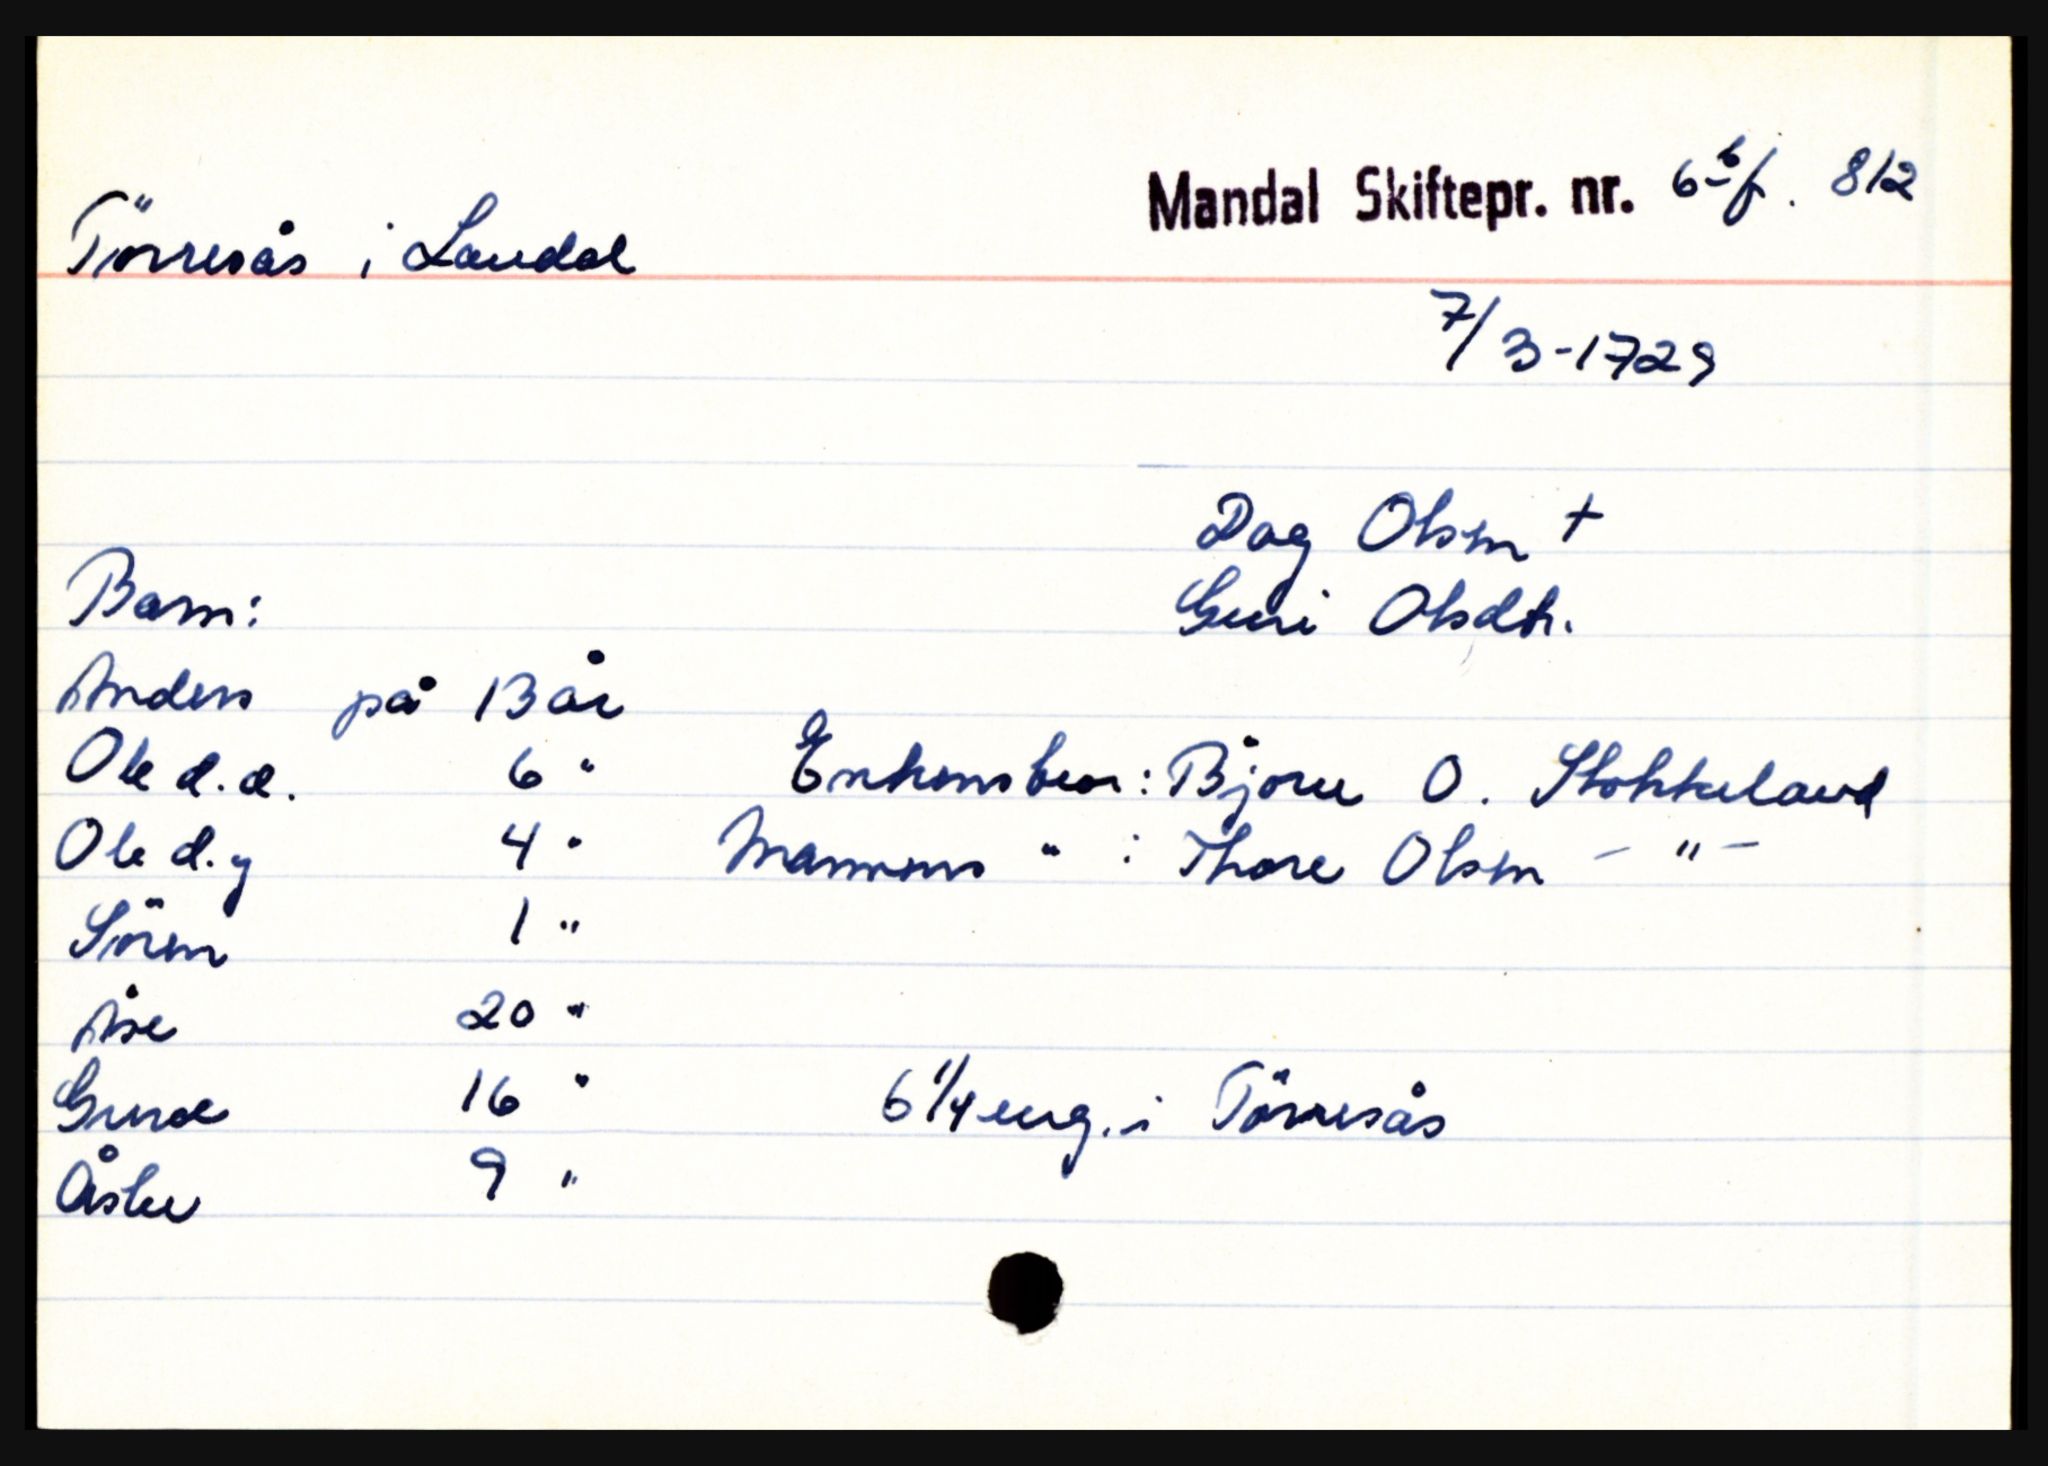 Mandal Skiftepr. nr. 6 b f. 812
Törresås i Laudal
7/3-1729
Dag Olsen +
Guri Olsdtr.
Barn:
Anders på 13 år
Ole d.e. 6 "
Enkens bror: Bjorn O. Stokkeland
Ole d.y 4 "
Mannens " : Thore Olsen - " -
Sören 1 "
Åse 20 "
Guroe 16 "
6 1/4 eng. i Törresås
Åslu 9 "